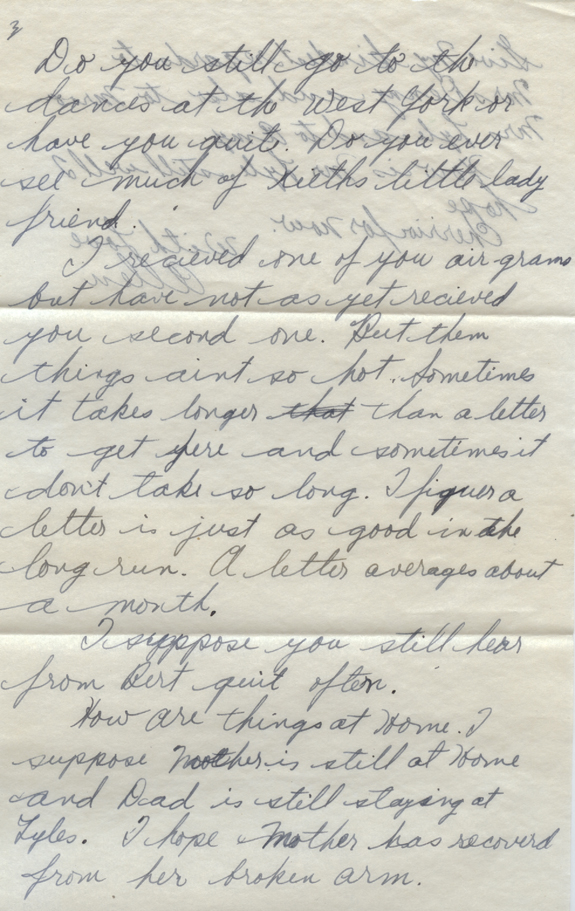 3
Do you still go to the
dances at th West York or
have you quit. Do you ever
see much of Keiths little lady
friend.
I recieved one of you air grams
but have not as yet recieved
you second one. But them
things aint so hot. Sometimes
it takes longer that than a letter
to get here and sometimes it
don't take so long. I figuer a
letter is just as good in the
long run. A letter averages about
a month.
I suppose you still hear
from Bert quit often.
How are things at Home. I
suppose Mother is still at Home
and Dad is still staying at
Lyles. I hope Mother has recoverd
from her broken arm.